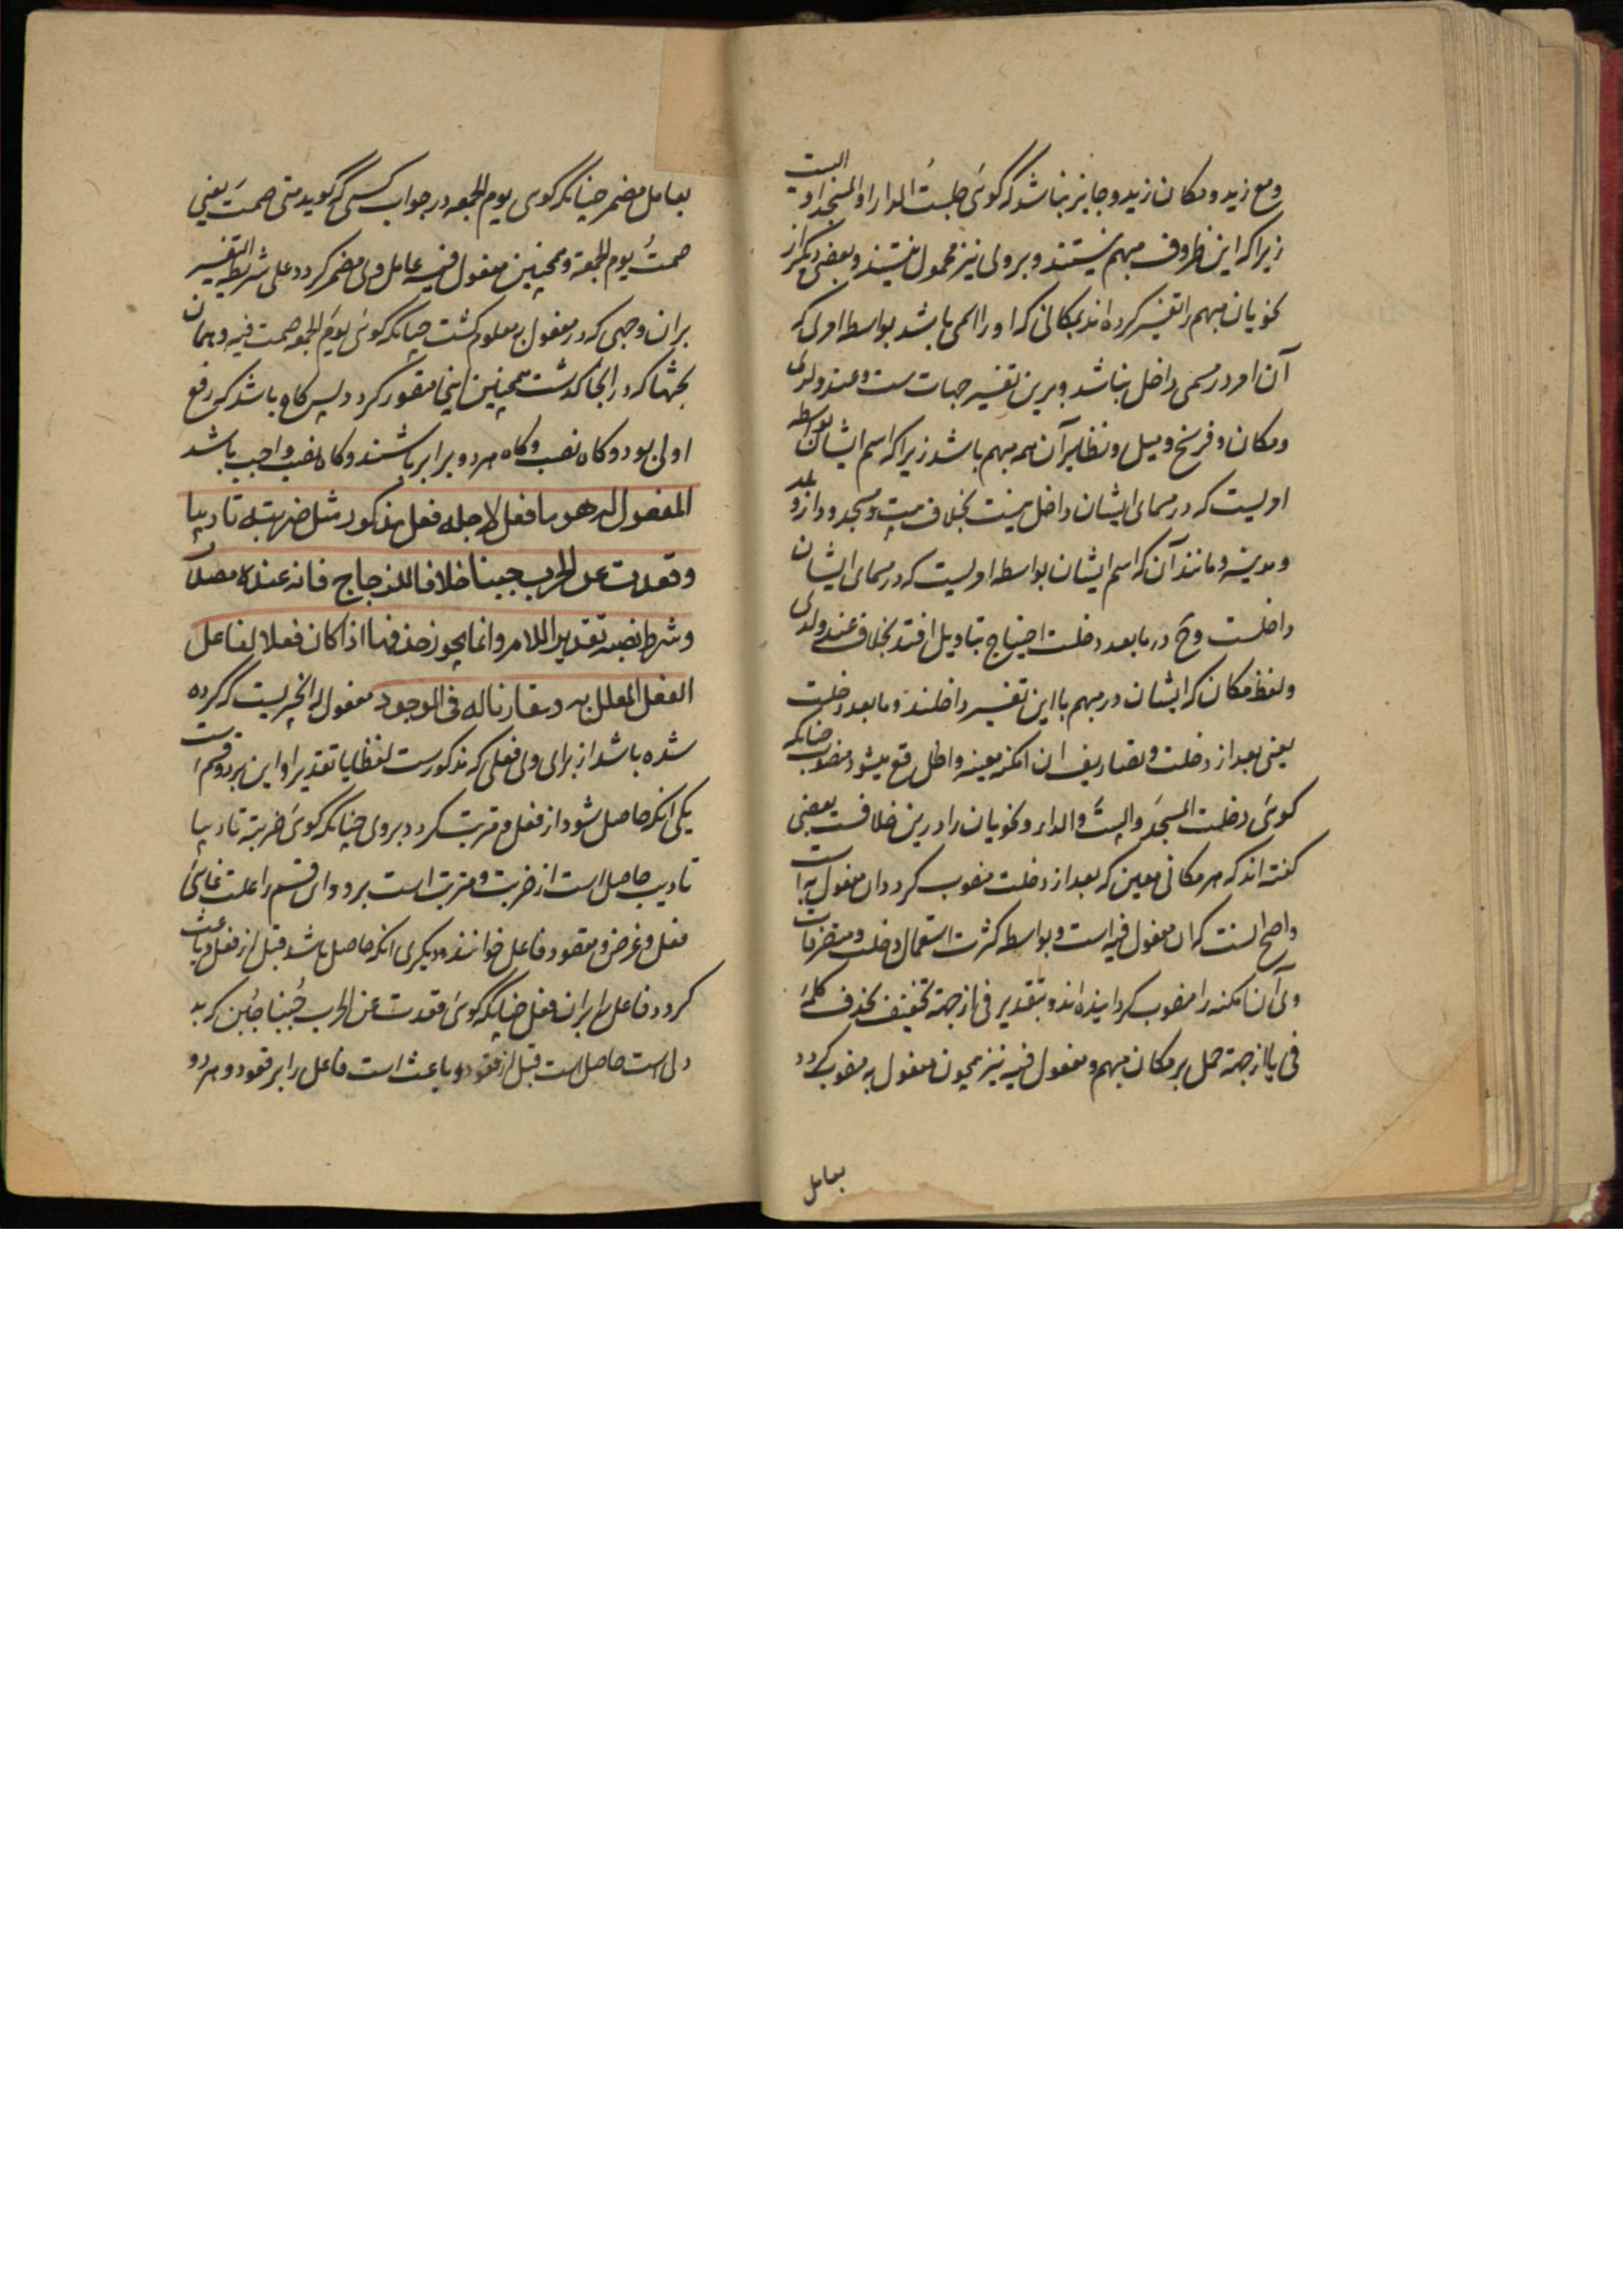 ومع زید و مکان زید و جایز نباشد که گوئی جلستُ الدار او المسجد او البیت
زیرا که این ظروف مبهم نیستند و بر وی نیز محمول نیستند و بعضی دیگر از
نحویان مبهم را تفسیر کرده اند بمکانی که او را اسمی باشد بواسطه امری که
آن امر در مسمی داخل نباشد و برین تفسیر جهات ست و عند و لدی
و مکان و فرسخ و میل و نظایر آن همه مبهم باشد زیرا که اسم ایشان بواسطه
امریست که در مسمای ایشان داخل نیست بخلاف بیت و مسجد و دار و بلد
و مدینه و مانند آن که اسم ایشان بواسطه امریست که در مسمای ایشان
داخلست وح در مابعد دخلت احتیاج بتاویل افتد بخلاف عند و لدی
و لفظ مکان که ایشان در مبهم با این تفسیر داخلند و مابعد دخلت
یعنی بعد از دخلت و تصاریف ان امکنه معینه واقع میشود منصوب چنانکه
کوئی دخلت المسجدَ و البیتَ و الدار و نحویان را درین خلافست بعضی
گفته اند که هر مکانی معین که بعد از دخلت منصوب کردد ان مفعول به است
و اصح انست که ان مفعول فیه است و بواسطه کثرت استعمال دخلت و متصرفات
وی آن امکنه را منصوب کردانیده اند و بتقدیر فی از جهة تخفیف بحذف کلمهٔ
فی یا از جهة حمل بر مکان مبهم و مفعول فیه نیز همچون مفعول به منصوب کردد
بعامل
بعامل مضمر چنانکه کوی یوم الجمعه در جواب کسی که کوید متی صمتَ یعنی
صمتُ یوم الجمعة و همچنین مفعول فیه عامل وی مضمر کردد علی شریطة التفسیر
بران وجهی که در مفعول به معلوم کشت چنانکه کوئی یومَ الجمعه صمت فیه و همان
بحثها که در انجا کذشت همچنین اینجا متصور کردد پس کاه باشد که رفع
اولی بود و کاه نصب و کاه هر دو برابر باشند و کاه نصب واجب باشد
المفعول له هو ما فعل لاجله فعل مذکور مثل ضربته تادیبا
وقعدت عن الحرب جبنا خلافا للزجاج فانه عنده مصدر
وشرط نصبه تقدیر اللام وانما یجوز حذفها اذا کان فعلا لفاعل
الفعل المعلل به ومقارنا له فی الوجود مفعول له انچیزیست که کرده
شده باشد از برای وی فعلی که مذکورست لفظا یا تقدیرا و این بر دو قسم است
یکی انکه حاصل شود از فعل و مترتب کردد بر وی چنانکه کوئی ضربته تادیبا
تادیب حاصل است از ضربت و مترتب است برو و این قسم را علت غائی
فعل و غرض و مقصود فاعل خوانند و دیکری انکه حاصل باشد قبل از فعل و باعث
کردد فاعل را بران فعل چنانکه کوئی قعدت عن الحرب جُبنا جُبن که بد
دلی است حاصل است قبل از قعود و باعث است فاعل را بر قعود و هر دو